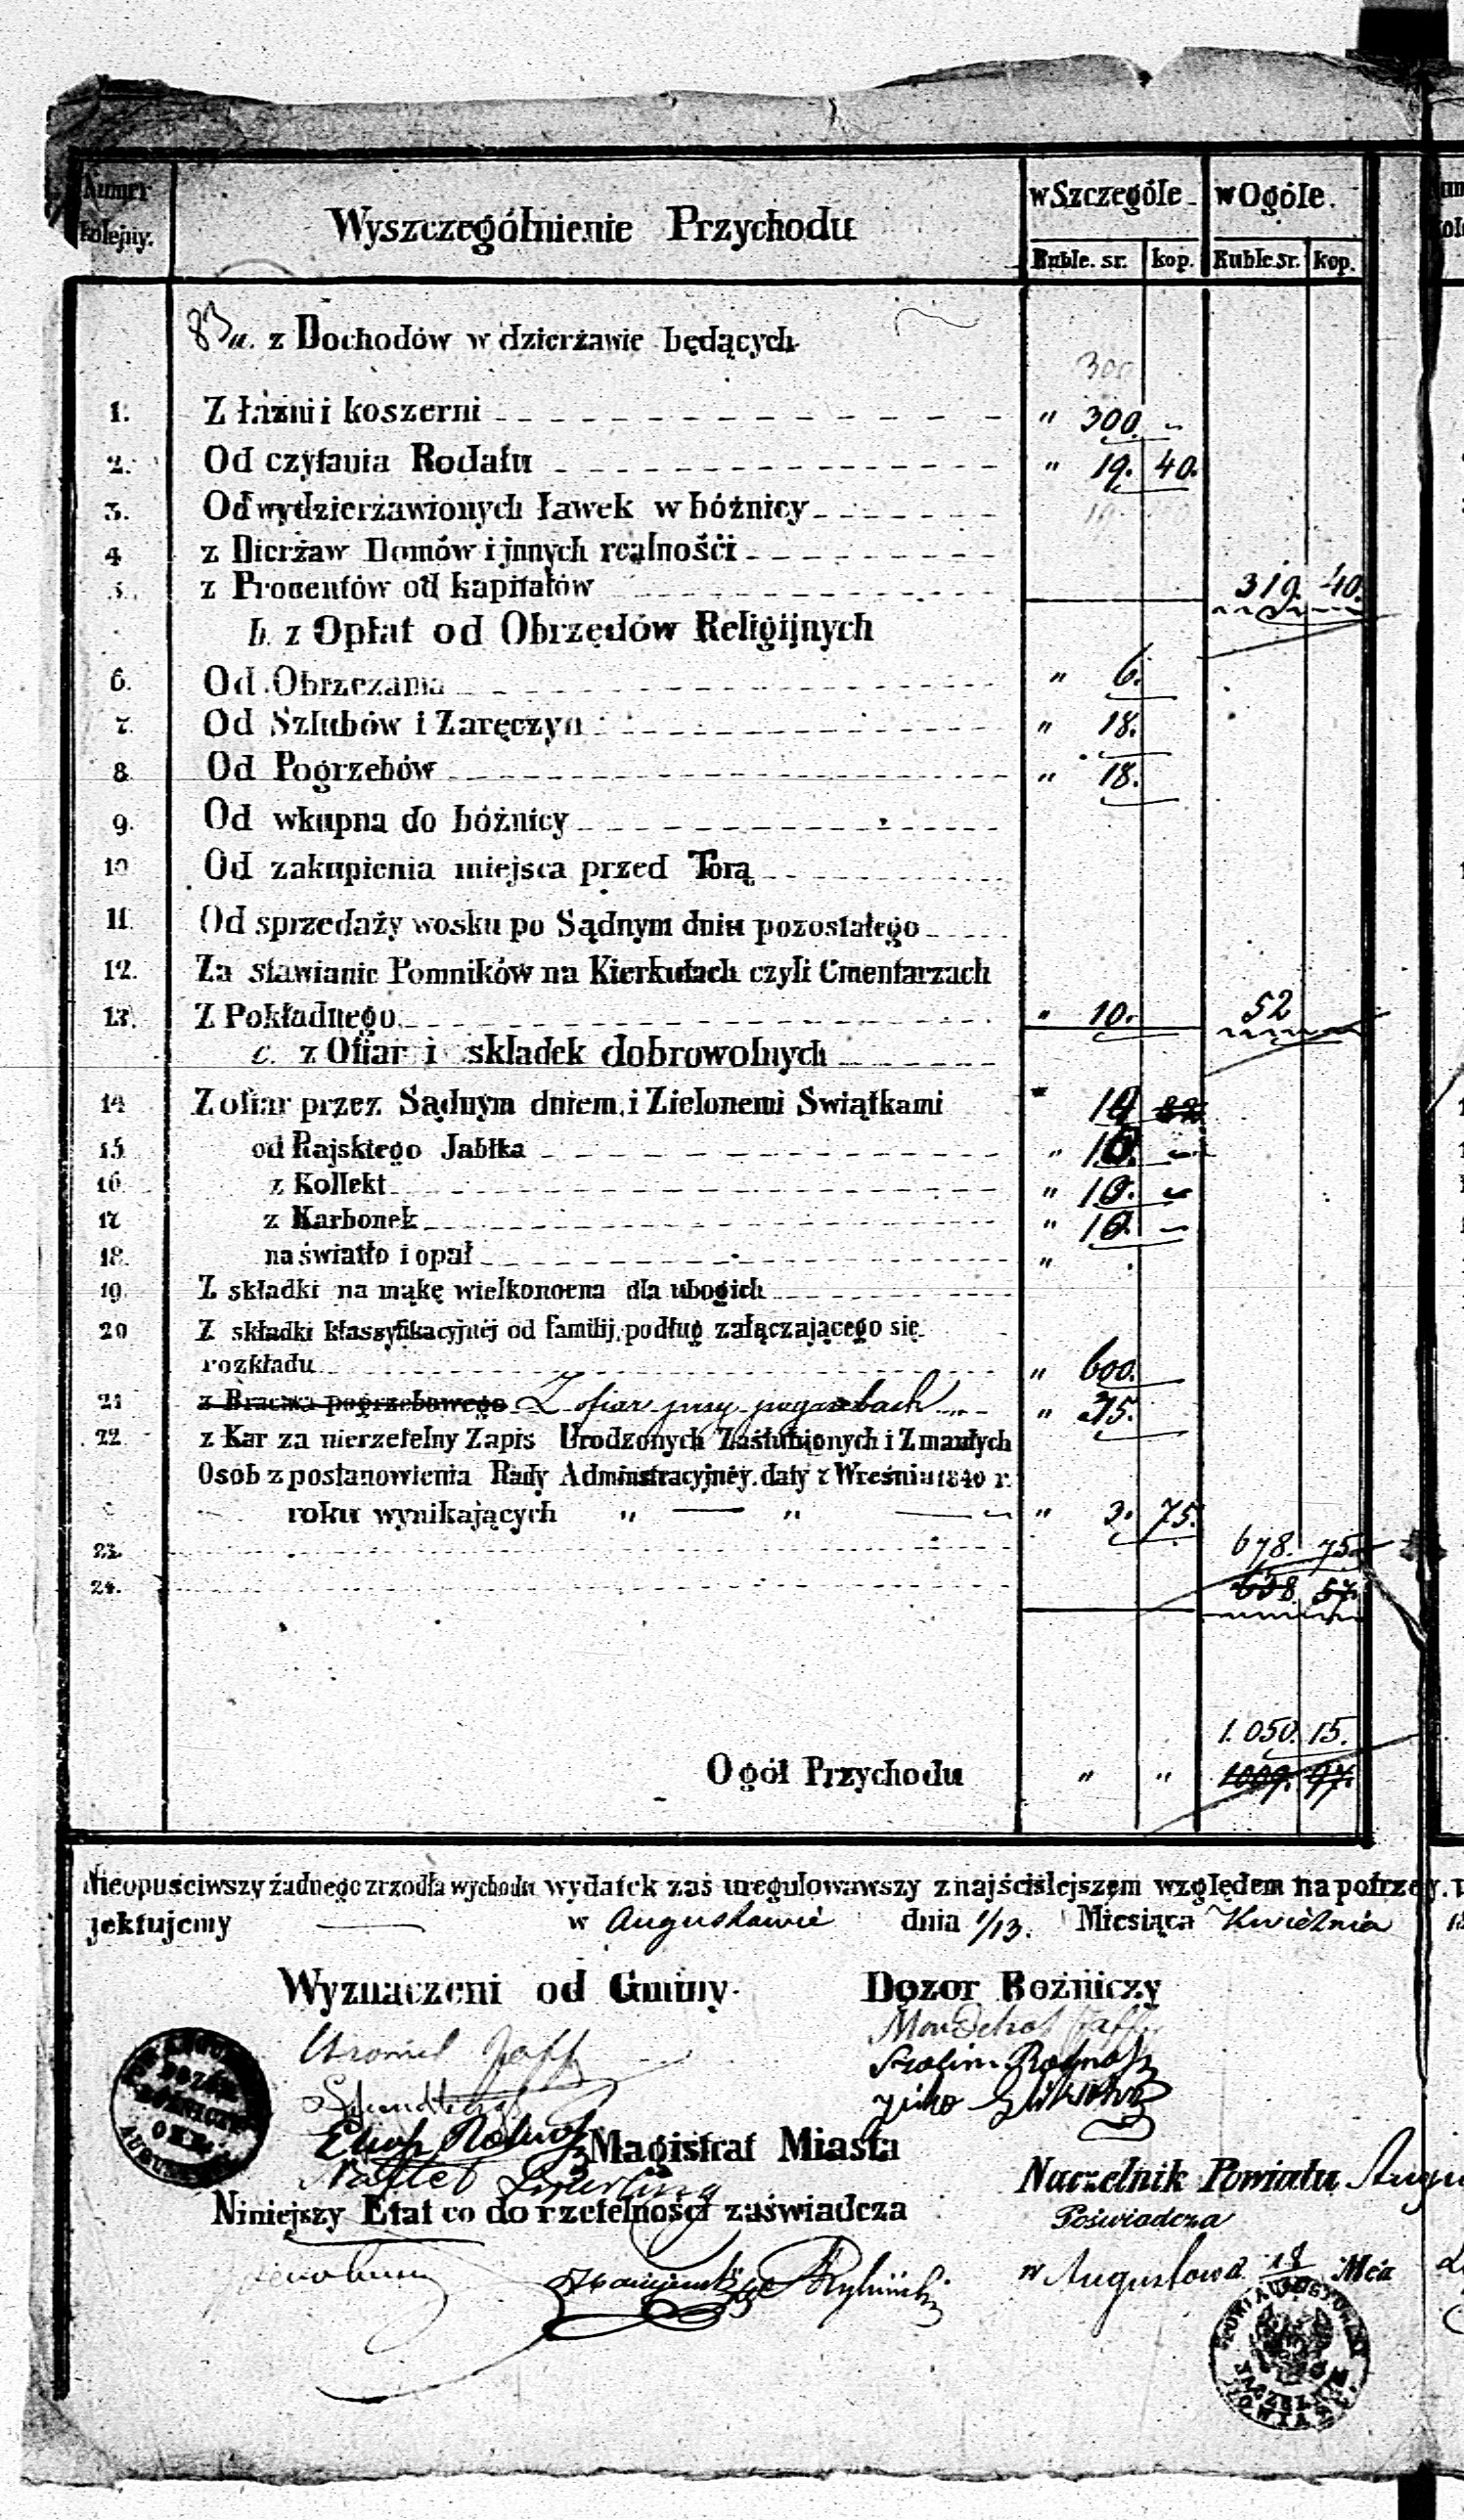 Numer kolejny.
Wyszczególnienie Przychodu
w Szczególe. w Ogóle.
Ruble. sr. kop. Ruble sr. kop.
a. z Dochodów w dzierżawie będących
300
1. Z łaźni i koszerni " 300. -
2. Od czytania Rodału " 19. 40.
3. Od wydzierżawionych ławek w bóżnicy
4 z Dierżaw Domów i jnnych realnośći
5. z Procentów od kapitałów 319. 40.
b. z Opłat od Obrzędów Religijnych
6. Od Obrzezania " 6.
7. Od Szlubów i Zaręczyn " 18.
8 Od Pogrzebów " 18.
9. Od wkupna do bóżnicy
10 Od zakupienia miejsca przed Torą
11. Od sprzedaży wosku po Sądnym dniu pozostałego
12. Za stawianie Pomników na Kierkutach czyli Cmentarzach
13. Z Pokładnego " 10. 52
c. z Ofiar i składek dobrowolnych
14 Z ofiar przez Sądnym dniem, i Zielonemi Swiątkami " 10
15 od Rajskiego Jabłka " 10. -
16 z Kollekt " 10. -
17 z Karbonek " 10. -
18. na światło i opał "
19. Z składki na mąkę wielkonocna dla ubogich
20 Z składki klassyfikacyjnéj od familij, podług załączającego się
rozkładu " 600.
21 z Bractwa pogrzebowego Z ofiar przy pogrzebach " 35.
22 z Kar za nierzetelny Zapis Urodzonych Zaślubionych i Zmarłych
Osób z postanowienia Rady Adminstracyjnéy. daty z Wreśniu 1840 r.
roku wynikających " — " — " 3. 75.
23. 678. 75.
24. 638 57.
1.050. 15.
Ogół Przychodu " " 1009. 97.
Nieopuściwszy żadnego zrzodła wychodu wydatek zaś uregulowawszy z najściślejszém względem na potrze
jektujemy w Augustowie dnia 1/13. Miesiąca Kwietnia
Wyznaczeni od Gminy. Dozor Bożniczy
Magistrat Miasta
Naczelnik Powiatu
Niniejszy Etat co do rzetelności zaświadcza
Poświadcza
w Augustowie 18 Mca